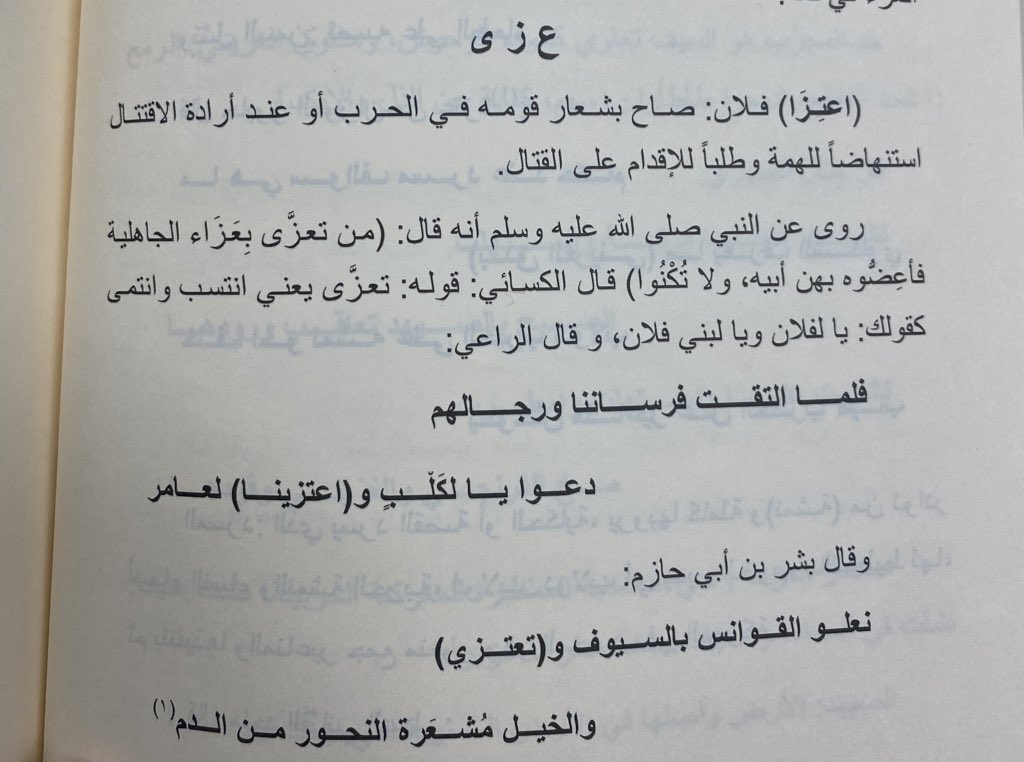 ع ز ى
(اعتِزَا) فلان: صاح بشعار قومه في الحرب أو عند أرادة الاقتتال
استنهاضاً للهمة وطلباً للإقدام على القتال.
روى عن النبي صلى الله عليه وسلم أنه قال: (من تعزَّى بِعَزَاء الجاهلية
فأعِضُّوه بهن أبيه، ولا تُكْنُوا) قال الكسائي: قوله: تعزَّى يعني انتسب وانتمى
كقولك: يا لفلان ويا لبني فلان، و قال الراعي:
فلمـا التقـت فرسـاننا ورجـالهم
دعـوا يـا لكَلْـبٍ و(اعتزينـا) لعـامر
وقال بشر بن أبي حازم:
نعلـو القـوانس بالسيـوف و(تعتـزي)
والخيـل مُشـعَرة النحـور مـن الـدم(١)